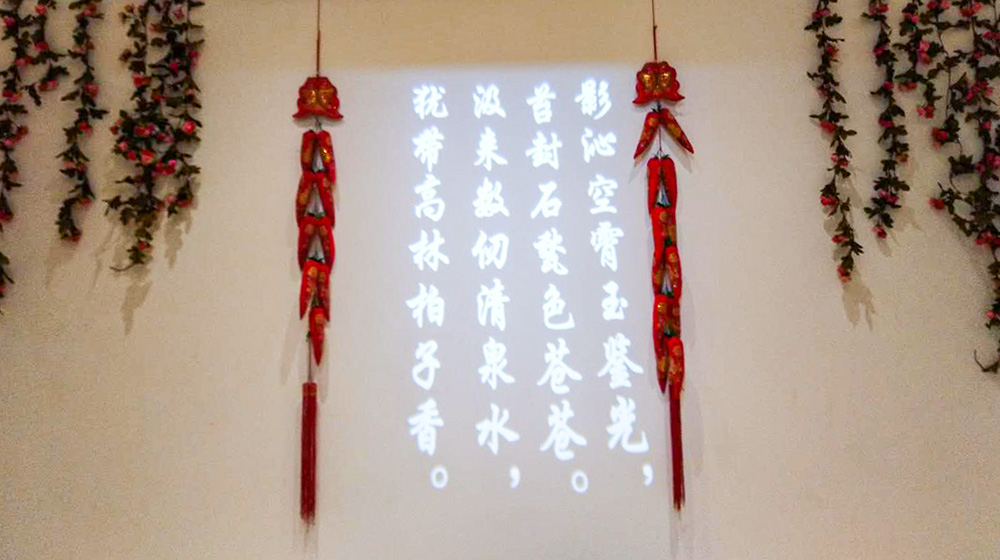 影沁空霄玉鉴光，
苔封石甃色苍苍。
汲来数仞清泉水，
犹带高林柏子香。